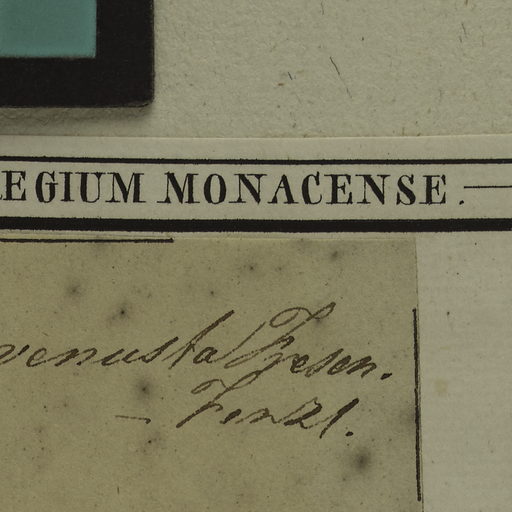 EGIUM MONACENSE.
venusta Fresen.
— Fenzl.